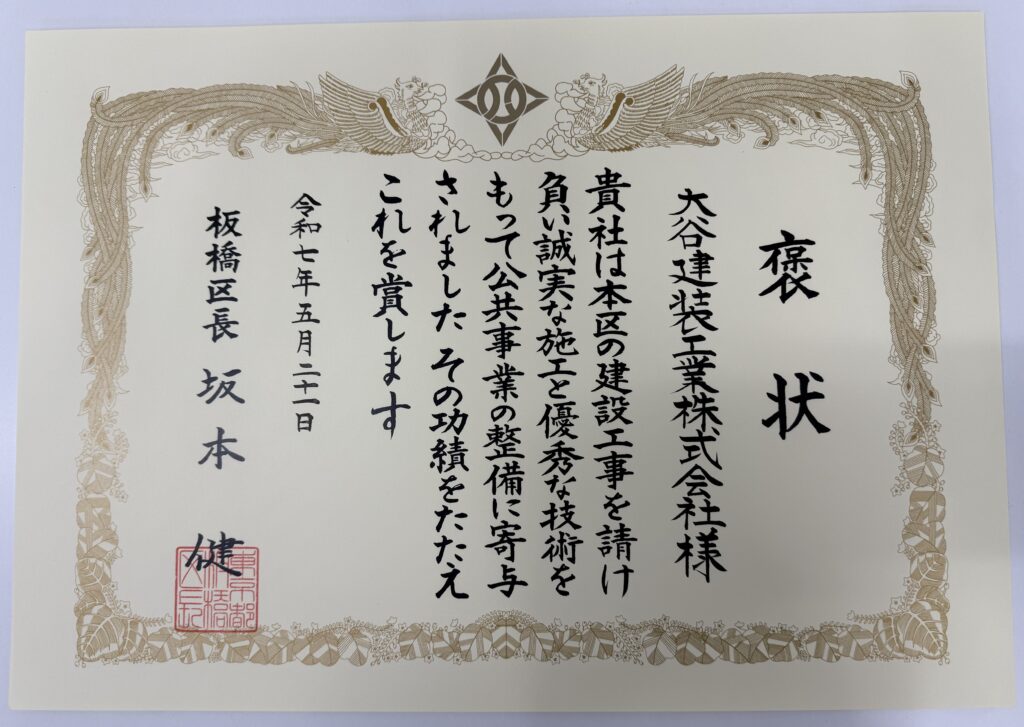 褒状
大谷建装工業株式会社様
貴社は本区の建設工事を請け
負い誠実な施工と優秀な技術を
もって公共事業の整備に寄与
されました その功績をたたえ
これを賞します
令和七年五月二十一日
板橋区長 坂本 健
東京都
板橋
区長